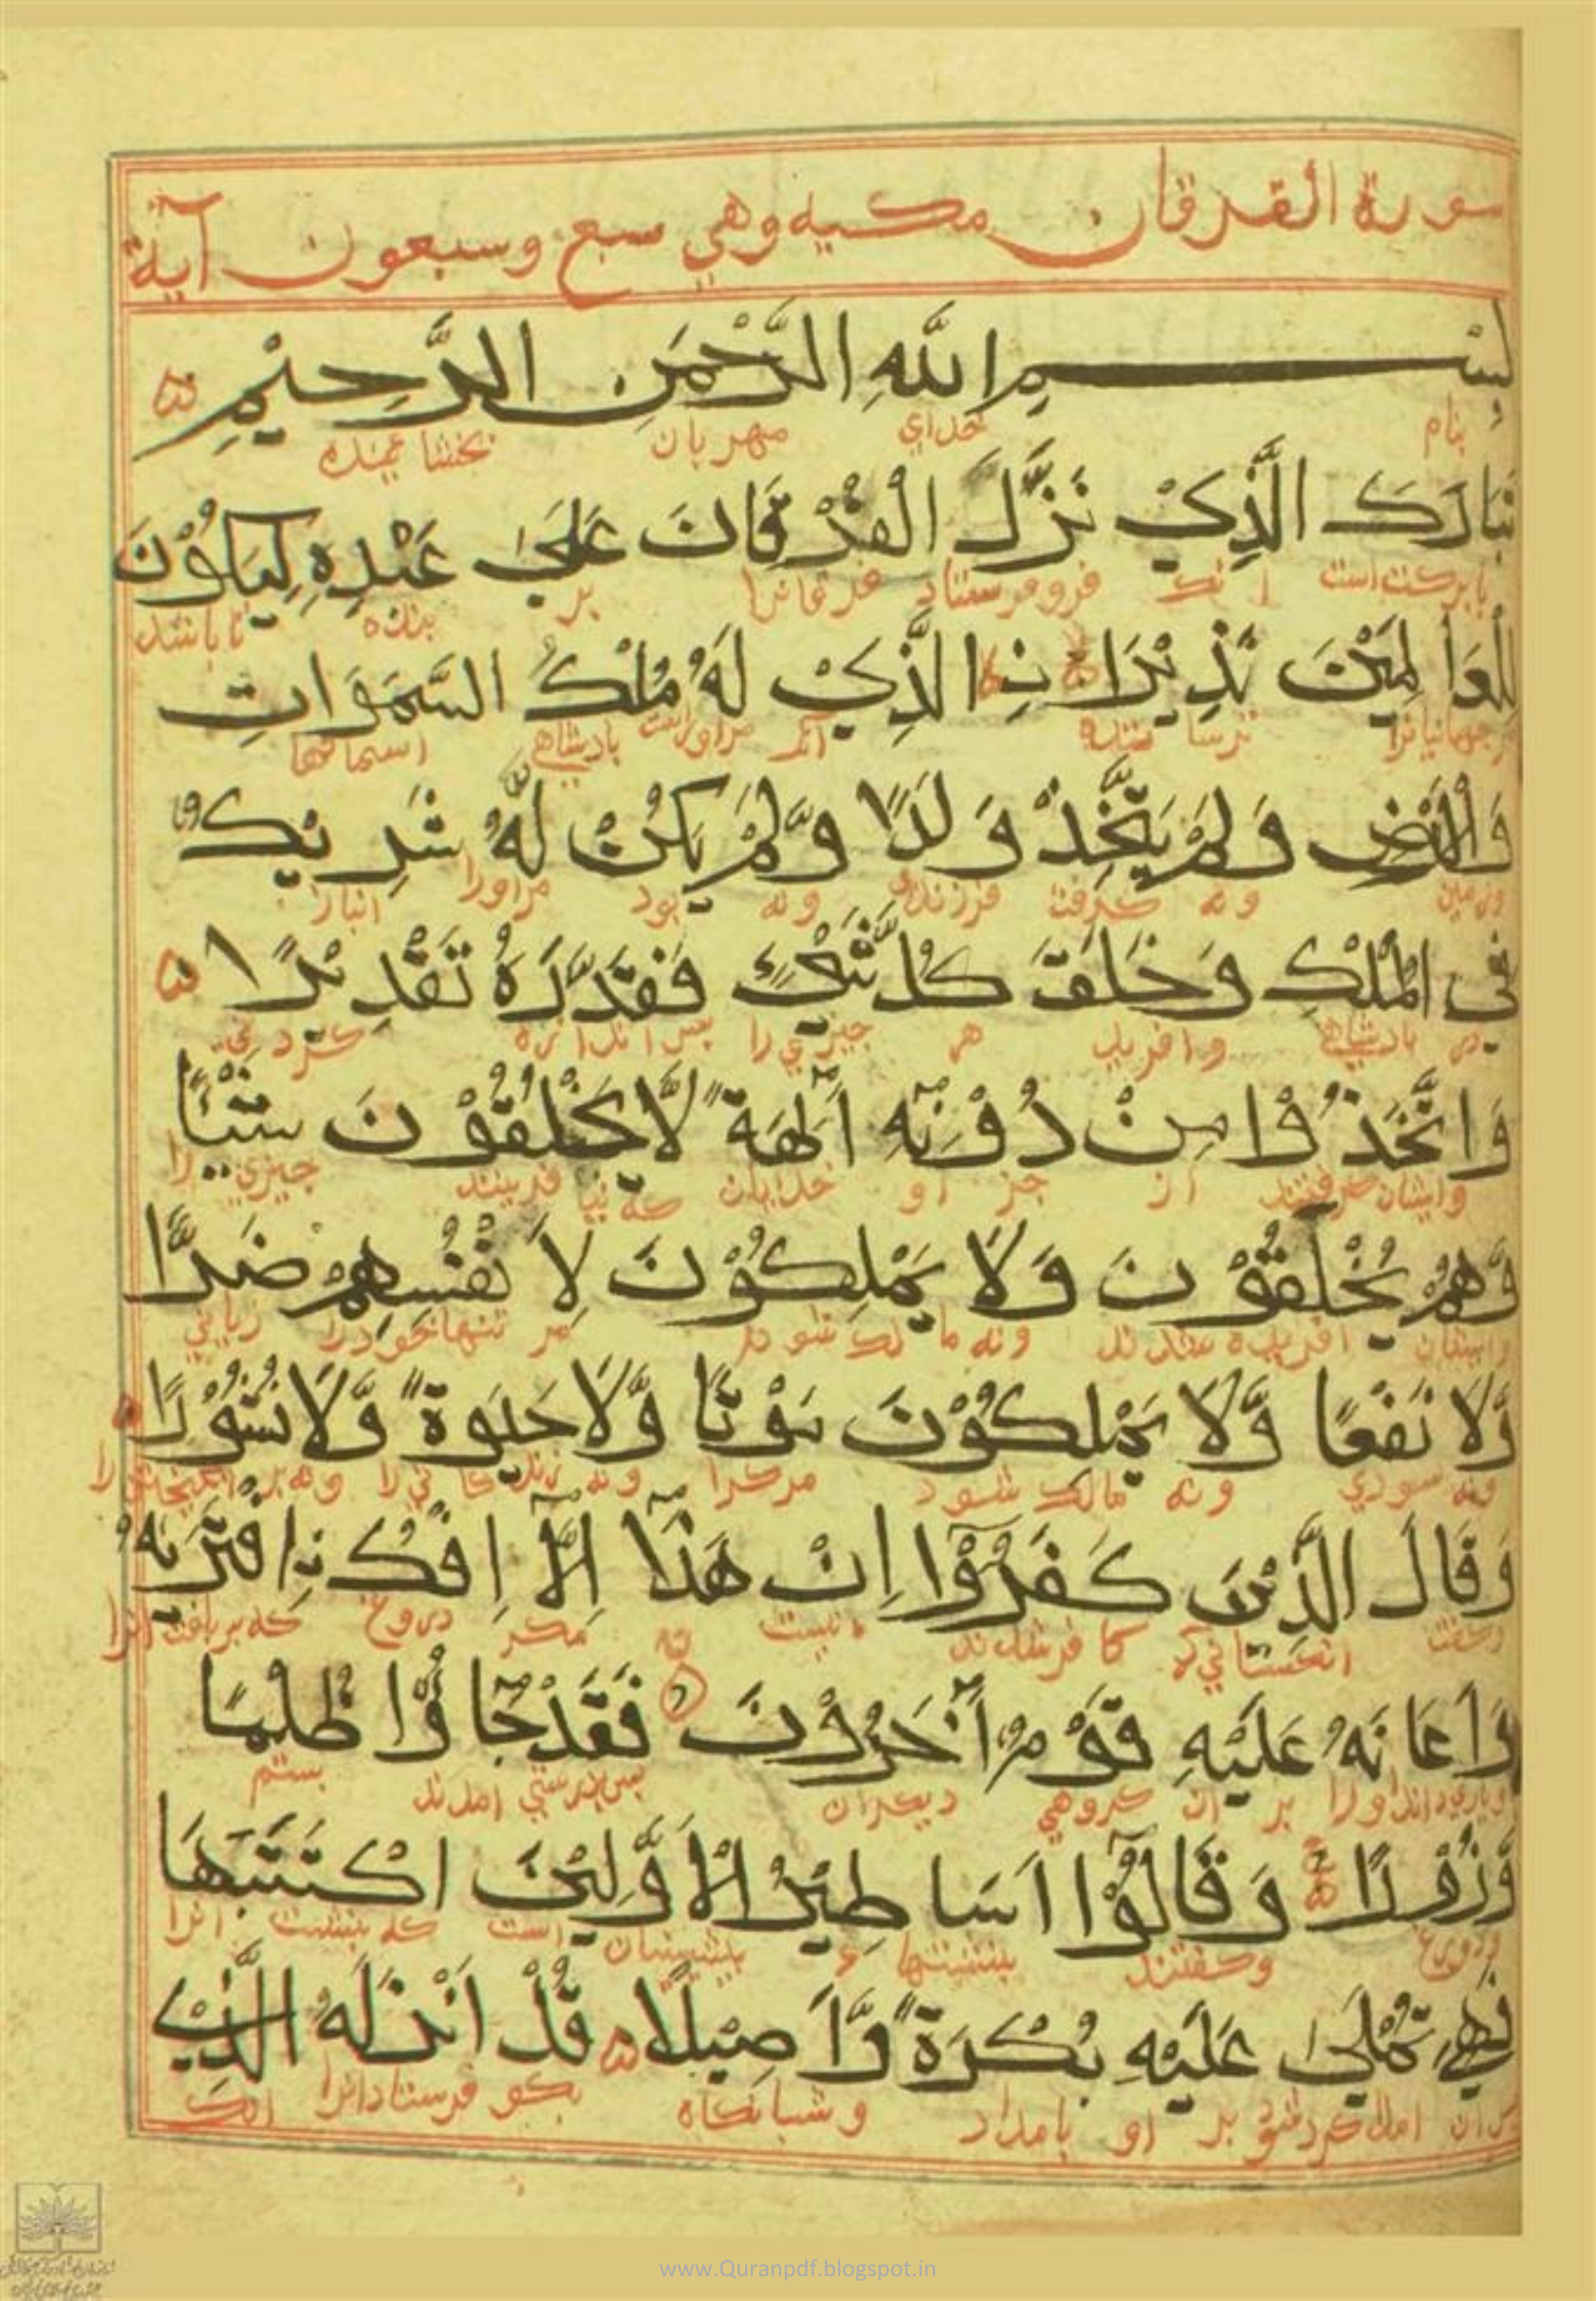 سورة الفرقان مكية وهي سبع وسبعون آية
بِسْمِ اللَّهِ الرَّحْمَنِ الرَّحِيْمِ
بنام خداي مهربان بخشاينده
تَبَارَكَ الَّذِيْ نَزَّلَ الْفُرْقَانَ عَلَىٰ عَبْدِهِ لِيَكُوْنَ
بابركت است انك فروفرستاد فرقانرا بر بنده تا باشد
لِلْعَالَمِيْنَ نَذِيْرًا نِ الَّذِيْ لَهُ مُلْكُ السَّمَوَاتِ
جهانيانرا ترسا ننده آنك مراوراست بادشاهي اسمانها
وَالْاَرْضِ وَلَمْ يَتَّخِذْ وَلَدًا وَّلَمْ يَكُنْ لَّهُ شَرِيْكٌ
وزمين ونه كرفت فرزندي ونه بود مراورا انباز
فِي الْمُلْكِ وَخَلَقَ كُلَّ شَيْءٍ فَقَدَّرَهُ تَقْدِيْرًا
در بادشاهي وافريد هر چيزي را پس اندازه كردني
وَاتَّخَذُوْا مِنْ دُوْنِهٓ اٰلِهَةً لَّا يَخْلُقُوْنَ شَيْئًا
وايشان كرفتند از جز او خدايان كه نيا فرينند چيزي را
وَّهُمْ يُخْلَقُوْنَ وَلَا يَمْلِكُوْنَ لِاَنْفُسِهِمْ ضَرًّا
وايشان افريده شدند ونه مالك شوند مر تنهاخودرا زياني
وَّلَا نَفْعًا وَّلَا يَمْلِكُوْنَ مَوْتًا وَّلَا حَيٰوةً وَّلَا نُشُوْرًا
ونه سودي ونه مالك شود مركرا ونه زندكاني را ونه برانكيختن را
وَقَالَ الَّذِيْنَ كَفَرُوْٓا اِنْ هٰذَآ اِلَّآ اِفْكُ نِ افْتَرٰىهُ
وكفت انكساني كه كافرشدند نيست مكر دروغ كه بربافت انرا
وَاَعَانَهُ عَلَيْهِ قَوْمٌ اٰخَرُوْنَ فَقَدْ جَآؤُا ظُلْمًا
وياري دانداورا بر ان كروهي ديكران پس بدرستي امدند بستم
وَّزُوْرًا وَقَالُوْٓا اَسَاطِيْرُ الْاَوَّلِيْنَ اكْتَتَبَهَا
ودروغ وكفتند پيشينيان است كه بنبشت انرا
فَهِيَ تُمْلٰى عَلَيْهِ بُكْرَةً وَّاَصِيْلًا قُلْ اَنْزَلَهُ الَّذِيْ
پس ان املاكرده شود بر او بامداد وشبانكاه بكو فرستادانرا انك
www.Quranpdf.blogspot.in